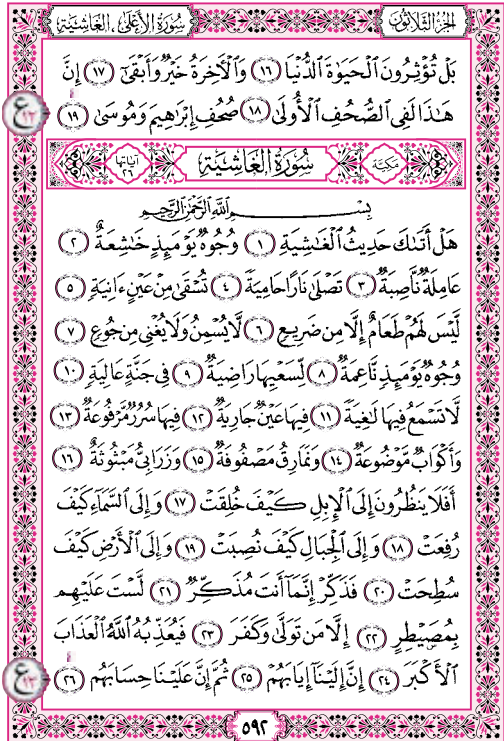 الجزء الثلاثون
سورة الأعلى، الغاشية
بَلْ تُؤْثِرُونَ ٱلْحَيَوٰةَ ٱلدُّنْيَا ﴿١٦﴾ وَٱلْءَاخِرَةُ خَيْرٌ وَأَبْقَىٰٓ ﴿١٧﴾ إِنَّ
هَٰذَا لَفِى ٱلصُّحُفِ ٱلْأُولَىٰ ﴿١٨﴾ صُحُفِ إِبْرَٰهِيمَ وَمُوسَىٰ ﴿١٩﴾
مكية
سُورَةُ الغَاشِيَة
آياتها ٢٦
بِسْمِ ٱللَّهِ ٱلرَّحْمَٰنِ ٱلرَّحِيمِ
هَلْ أَتَىٰكَ حَدِيثُ ٱلْغَٰشِيَةِ ﴿١﴾ وُجُوهٌ يَوْمَئِذٍ خَٰشِعَةٌ ﴿٢﴾
عَامِلَةٌ نَّاصِبَةٌ ﴿٣﴾ تَصْلَىٰ نَارًا حَامِيَةً ﴿٤﴾ تُسْقَىٰ مِنْ عَيْنٍ ءَانِيَةٍ ﴿٥﴾
لَّيْسَ لَهُمْ طَعَامٌ إِلَّا مِن ضَرِيعٍ ﴿٦﴾ لَّا يُسْمِنُ وَلَا يُغْنِى مِن جُوعٍ ﴿٧﴾
وُجُوهٌ يَوْمَئِذٍ نَّاعِمَةٌ ﴿٨﴾ لِّسَعْيِهَا رَاضِيَةٌ ﴿٩﴾ فِى جَنَّةٍ عَالِيَةٍ ﴿١٠﴾
لَّا تَسْمَعُ فِيهَا لَٰغِيَةً ﴿١١﴾ فِيهَا عَيْنٌ جَارِيَةٌ ﴿١٢﴾ فِيهَا سُرُرٌ مَّرْفُوعَةٌ ﴿١٣﴾
وَأَكْوَابٌ مَّوْضُوعَةٌ ﴿١٤﴾ وَنَمَارِقُ مَصْفُوفَةٌ ﴿١٥﴾ وَزَرَابِىُّ مَبْثُوثَةٌ ﴿١٦﴾
أَفَلَا يَنظُرُونَ إِلَى ٱلْإِبِلِ كَيْفَ خُلِقَتْ ﴿١٧﴾ وَإِلَى ٱلسَّمَآءِ كَيْفَ
رُفِعَتْ ﴿١٨﴾ وَإِلَى ٱلْجِبَالِ كَيْفَ نُصِبَتْ ﴿١٩﴾ وَإِلَى ٱلْأَرْضِ كَيْفَ
سُطِحَتْ ﴿٢٠﴾ فَذَكِّرْ إِنَّمَآ أَنتَ مُذَكِّرٌ ﴿٢١﴾ لَّسْتَ عَلَيْهِم
بِمُصَيْطِرٍ ﴿٢٢﴾ إِلَّا مَن تَوَلَّىٰ وَكَفَرَ ﴿٢٣﴾ فَيُعَذِّبُهُ ٱللَّهُ ٱلْعَذَابَ
ٱلْأَكْبَرَ ﴿٢٤﴾ إِنَّ إِلَيْنَآ إِيَابَهُمْ ﴿٢٥﴾ ثُمَّ إِنَّ عَلَيْنَا حِسَابَهُم ﴿٢٦﴾
٥٩٢